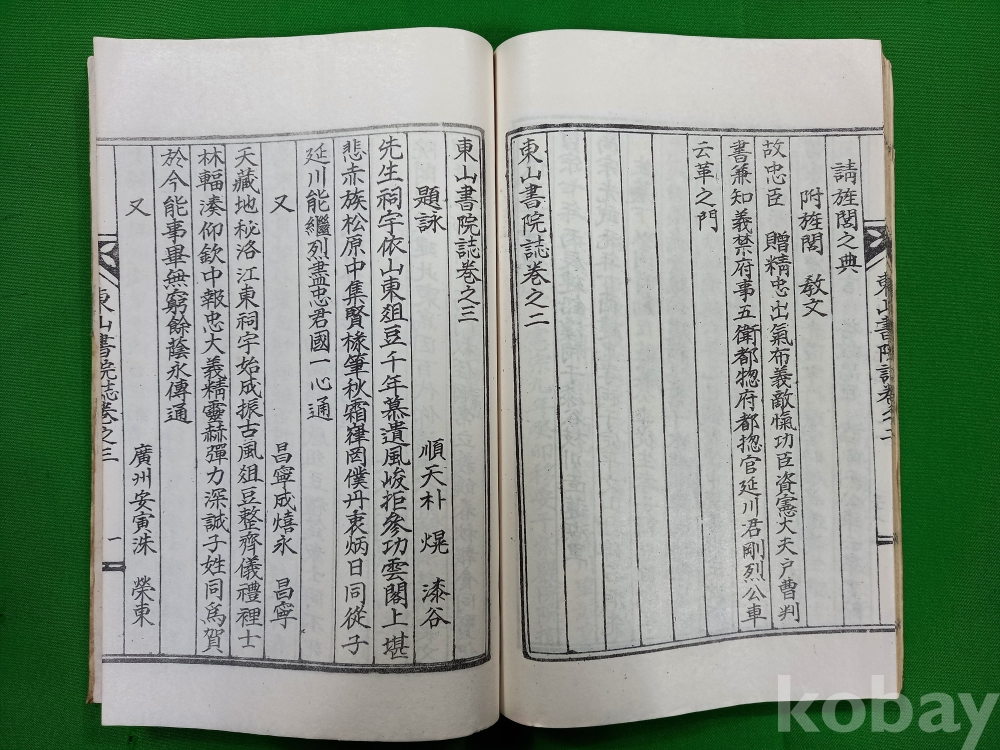 請旌閭之典
附旌閭 教文
故忠臣 贈精忠出氣布義敵愾功臣資憲大夫戶曹判
書兼知義禁府事五衛都惣府都揔官延川君剛烈公車
云革之門
東山書院誌卷之二
東山書院誌卷之二
東山書院誌卷之三
題詠
順天朴 熀 漆谷
先生祠宇依山東俎豆千年慕遺風峻拒參功雲閣上堪
悲赤族松原中集賢椽筆秋霜䅲囡僕丹衷炳日同從子
延川能繼烈盡忠君國一心通
又 昌寧成熺永 昌寧
天藏地秘洛江東祠宇始成振古風俎豆整齊儀禮裡士
林輻湊仰欽中報忠大義精靈赫彈力深誠子姓同爲賀
於今能事畢無窮餘蔭永傳通
又 廣州安寅洙 榮東
東山書院誌卷之三 一
kobay